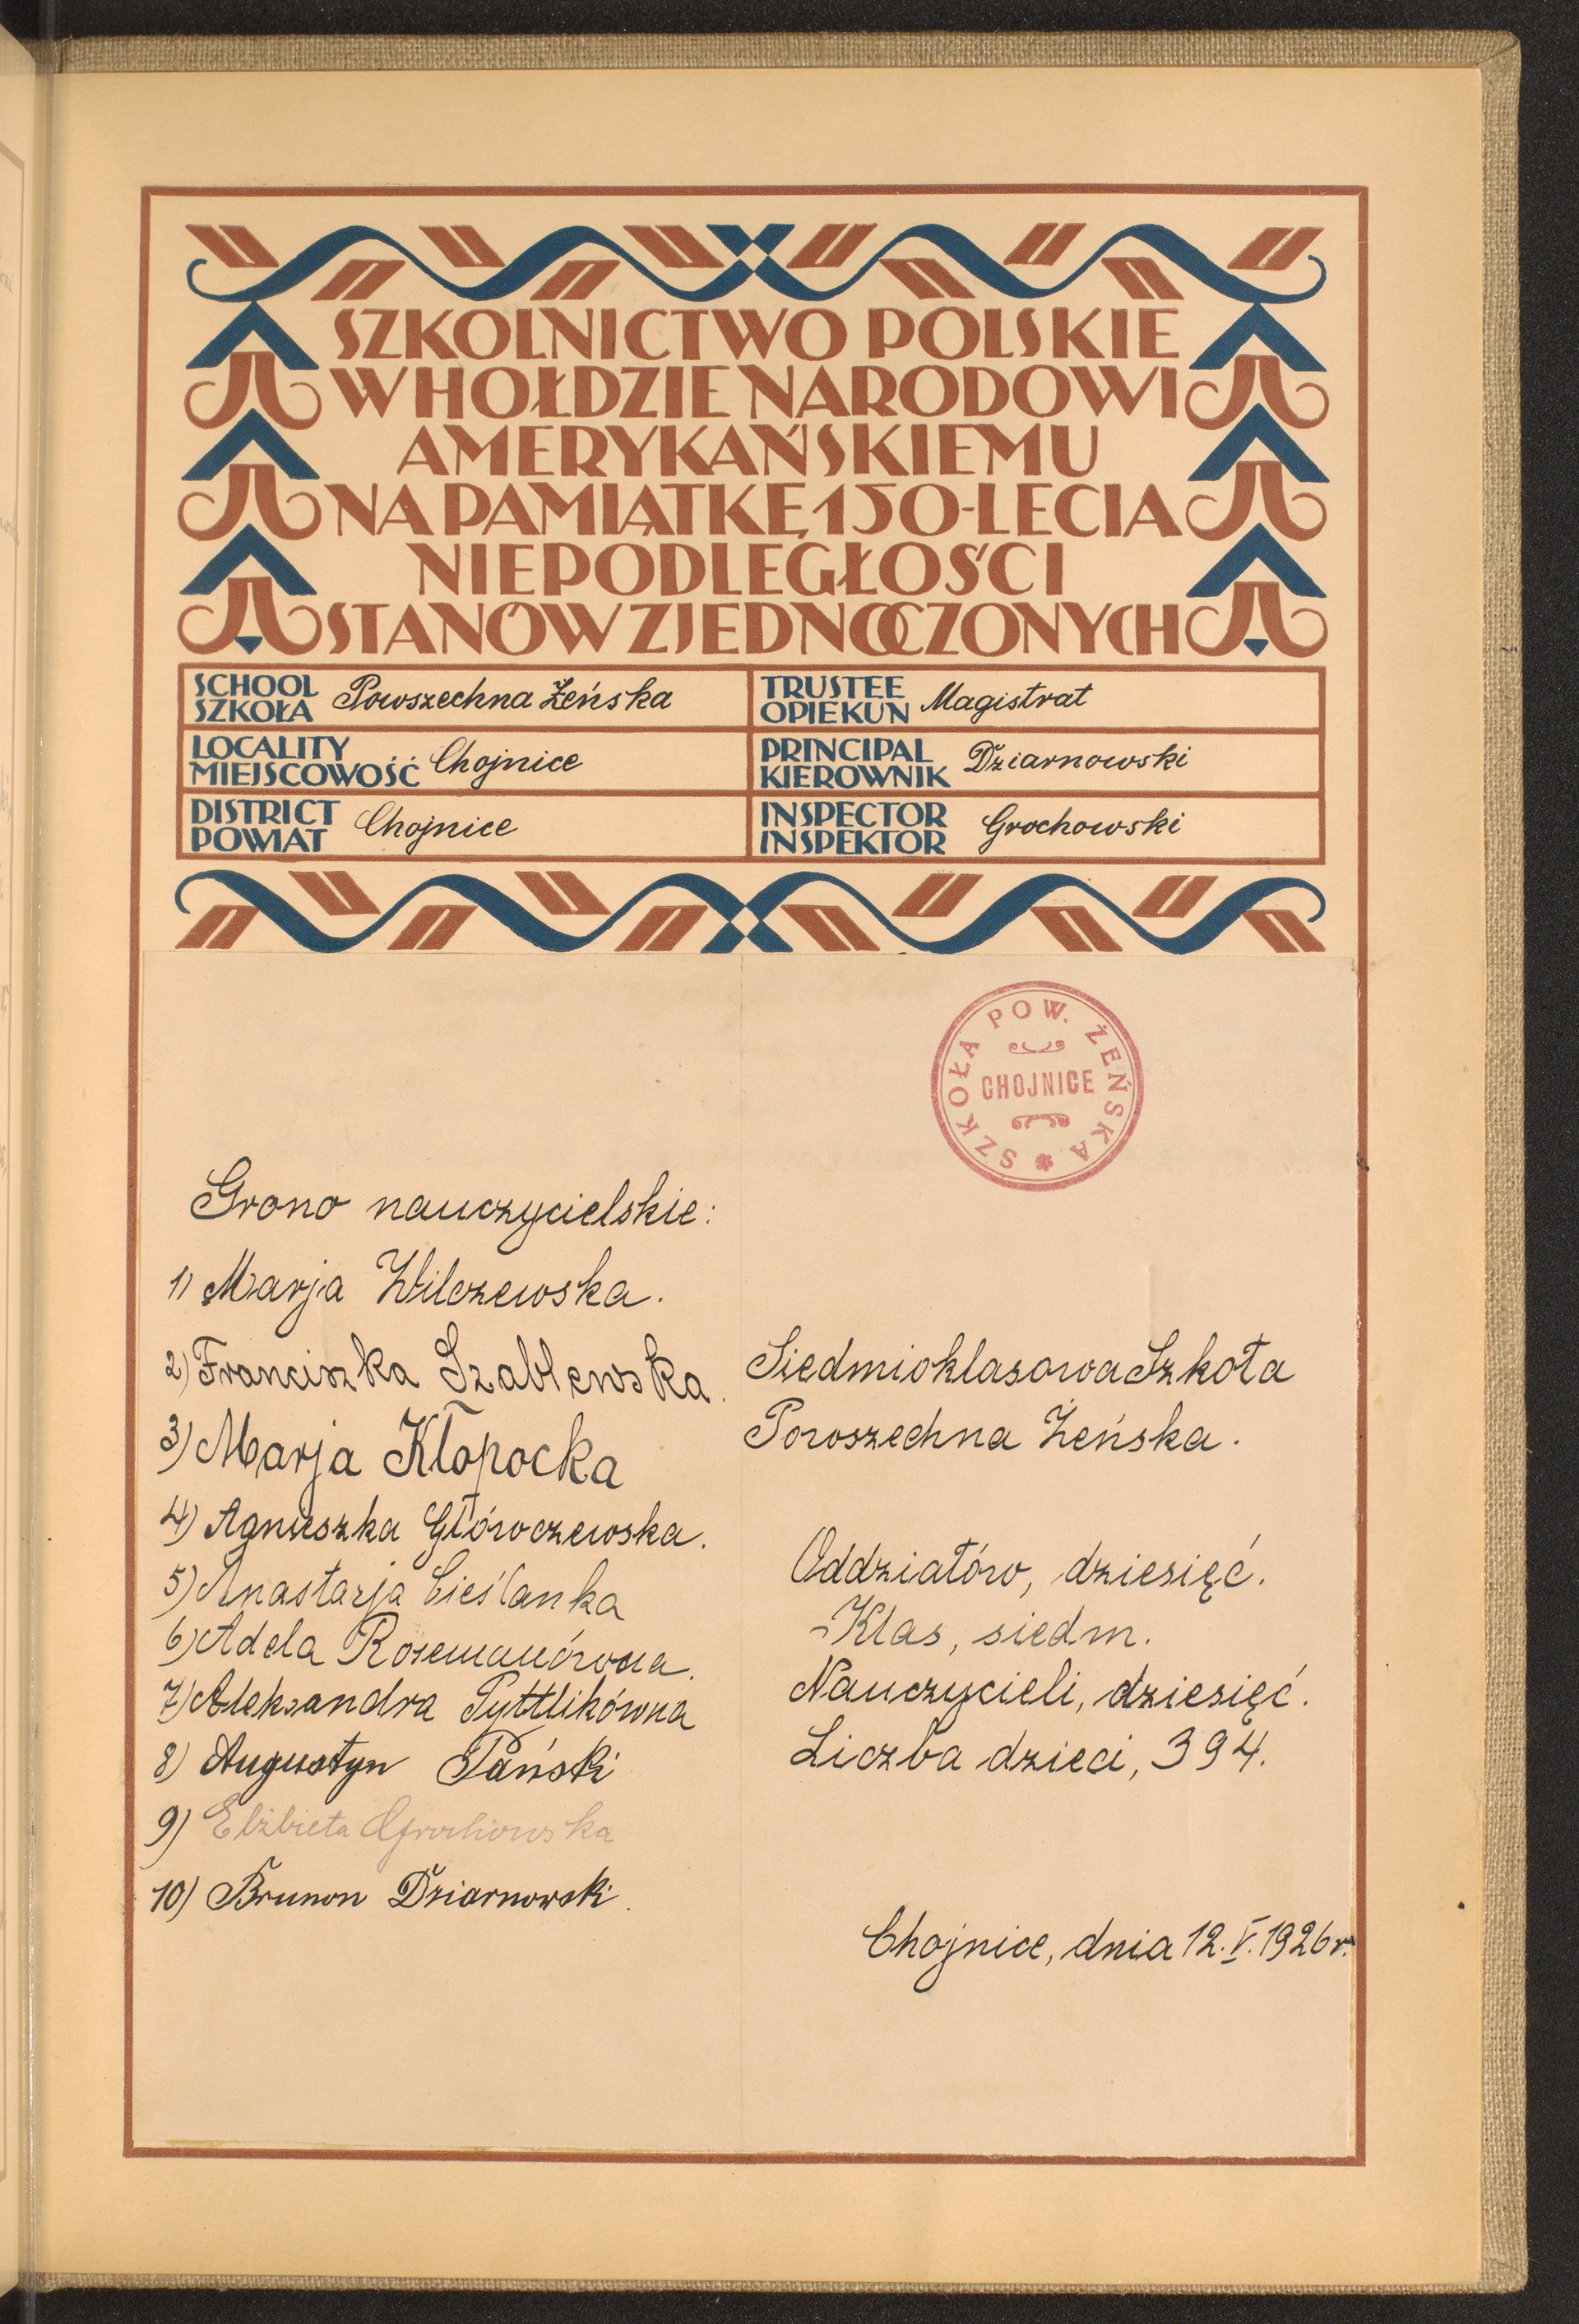 SZKOLNICTWO POLSKIE
W HOŁDZIE NARODOWI
AMERYKAŃSKIEMU
NA PAMIĄTKĘ 150-LECIA
NIEPODLEGŁOŚCI
STANÓW ZJEDNOCZONYCH
SCHOOL
SZKOŁA Powszechna Żeńska
TRUSTEE
OPIEKUN Magistrat
LOCALITY
MIEJSCOWOŚĆ Chojnice
PRINCIPAL
KIEROWNIK Dziarnowski
DISTRICT
POWIAT Chojnice
INSPECTOR
INSPEKTOR Grochowski
SZKOŁA POW. ŻEŃSKA
CHOJNICE
Grono nauczycielskie:
1) Marja Wilczewska.
2) Franciszka Szablewska.
3) Marja Kłopocka
4) Agnieszka Główczewska.
5) Anastazja Cieślanka
6) Adela Rosemanówna.
7) Aleksandra Pyttlikówna
8) Augustyn Pański
9) Elżbieta Grochowska
10) Brunon Dziarnowski.
Siedmioklasowa Szkoła
Powszechna Żeńska.
Oddziałów, dziesięć.
Klas, siedm.
Nauczycieli, dziesięć.
Liczba dzieci, 394.
Chojnice, dnia 12.V.1926 r.